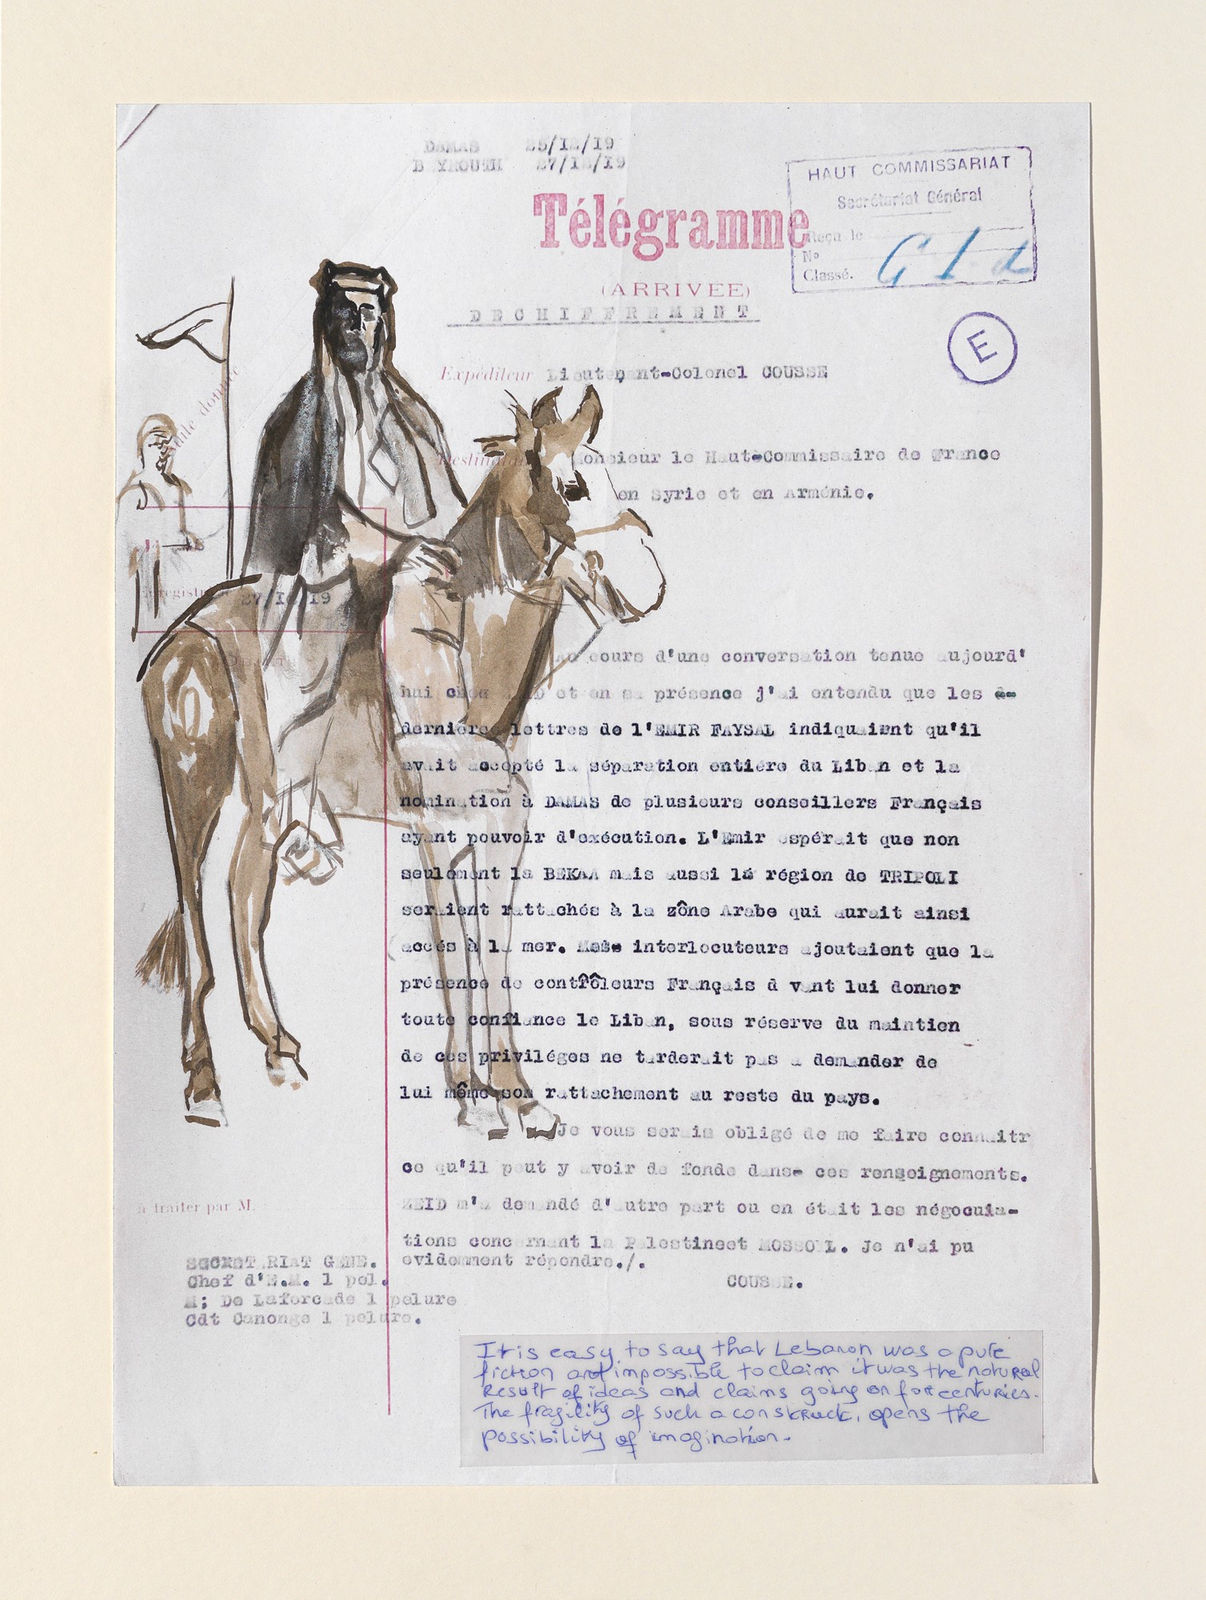 DAMAS 25/12/19
BEYROUTH 27/12/19
Télégramme
(ARRIVEE)
DECHIFFREMENT
HAUT COMMISSARIAT
Secrétariat Général
Reçu le
N°
Classé.
E
Expéditeur Lieutenant-Colonel COUSSE
Monsieur le Haut-Commissaire de France
en Syrie et en Arménie.
27/12/19
Au cours d'une conversation tenue aujourd'
hui chez ZEID et en sa présence j'ai entendu que les
dernières lettres de l'EMIR FAYSAL indiquaient qu'il
avait accepté la séparation entière du Liban et la
nomination à DAMAS de plusieurs conseillers Français
ayant pouvoir d'exécution. L'Emir espérait que non
seulement la BEKAA mais aussi la région de TRIPOLI
seraient rattachés à la zône Arabe qui aurait ainsi
accés à la mer. Mes interlocuteurs ajoutaient que la
présence de contrôleurs Français devant lui donner
toute confiance le Liban, sous réserve du maintien
de ces priviléges ne tarderait pas a demander de
lui même son rattachement au reste du pays.
Je vous serais obligé de me faire connaitr
ce qu'il peut y avoir de fonde dans- ces renseignements.
ZEID m'a demandé d'autre part ou en était les négocuia-
tions concernant la Palestineet MOSSOUL. Je n'ai pu
evidemment répondre./.
COUSSE.
à traiter par M.
SECRETARIAT GENE.
Chef d'E.M. 1 pel.
M; De Laforcade 1 pelure
Cdt Canonge 1 pelure.
It is easy to say that Lebanon was a pure
fiction and impossible to claim it was the natural
Result of ideas and claims going on for centuries.
The fragility of such a construck, opens the
possibility of imagination.